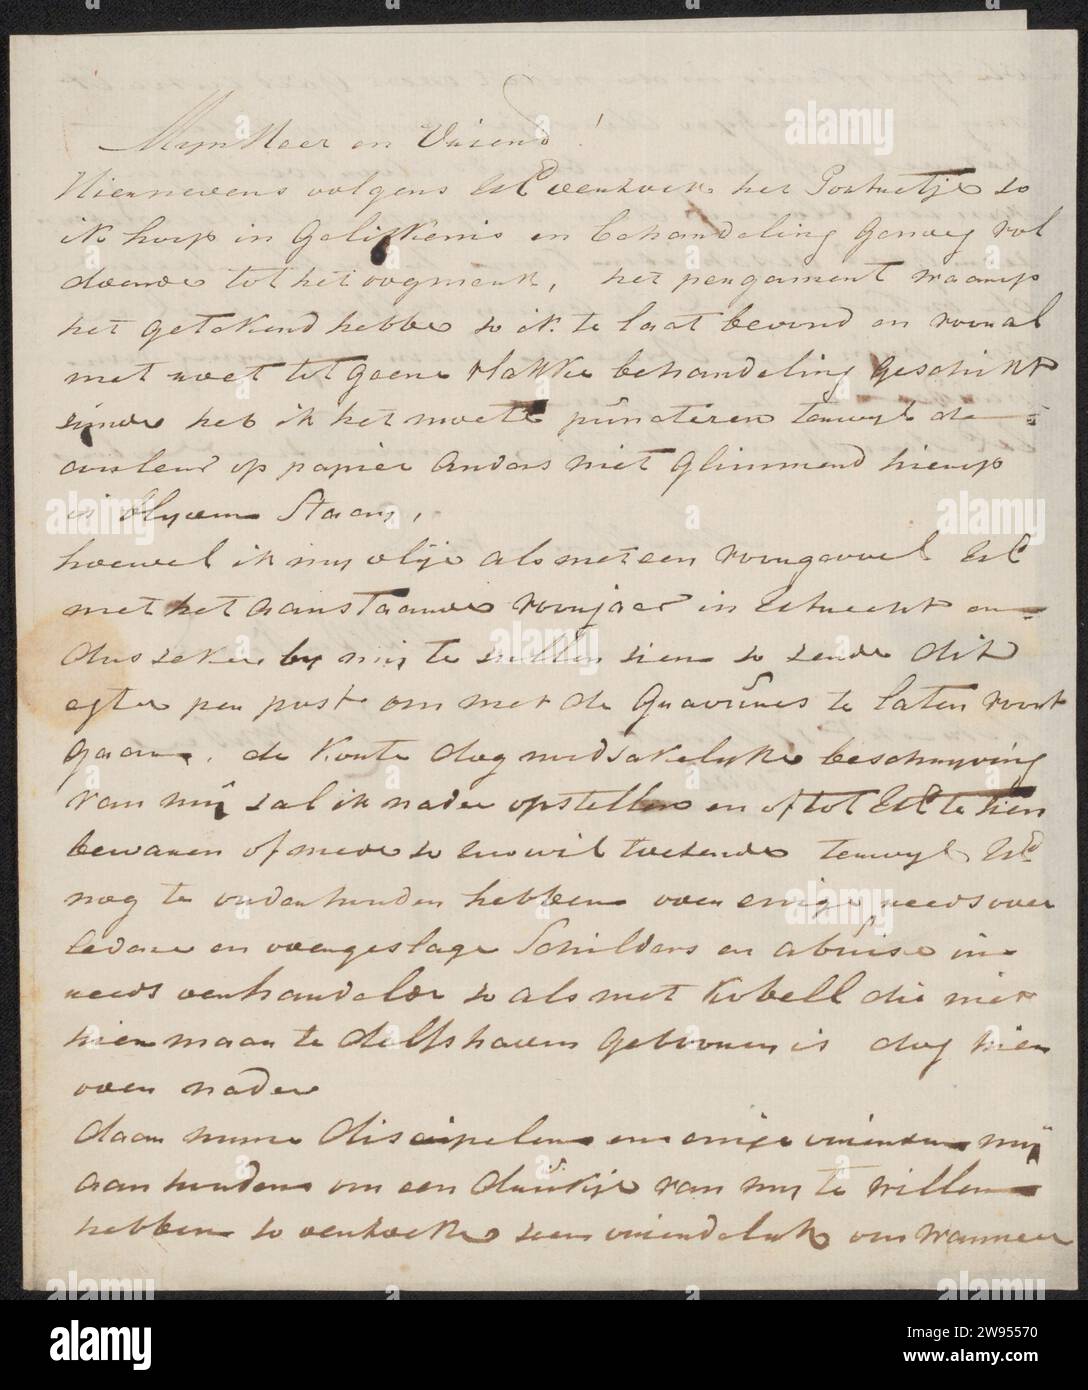 MijnHeer en Vriend!
Hiernevens volgens UEd verzoek het Portretje zo
ik hoop in Gelijkenis en behandeling Genoeg vol
doende tot het oogmerk, het pergament waarop
het getekend hebbe zo ik te laat bevond en vooral
met voor tot geene vlakke behandeling geschikt
zinde heb ik het moete punteren terwyl de
couleur op papier anders niet glimmend hierop
is blyven Staan,
hoewel ik my vlije als met een voorgevoel UEd
met het aanstaande voorjaar in Utrecht en
dus zeker by mij te zullen zien zo zende dit
egter per post om met de Gravures te laten voort
gaan. de korte dog nodsakelijke beschryving
van mij zal ik nader opstellen en of tot UEd te hier
bewaren of mede zo Einwil toezende terwyl UEd
nog te onderhouden hebben over enige reeds over
ledene en voorgeslage Schilders en abuise in
reeds verhandelde zo als met Kobell die niet
hier maar te delfshaven Gebooren is dog hier
over nader
daar mine discipelen en enige vrienden mij
aanhouden om een drukje van my te willen
hebben zo verzoek zeer vriendelijk om wanneer
alamy
Image ID: 2W95570
www.alamy.com